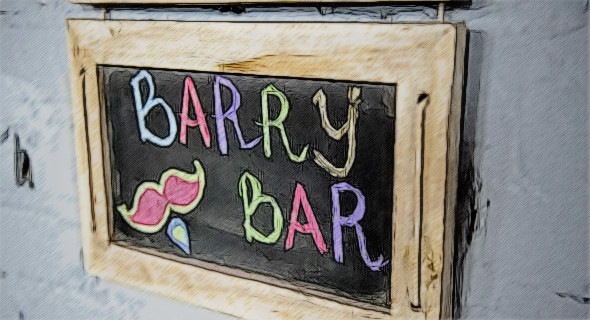 BARRy
BAR